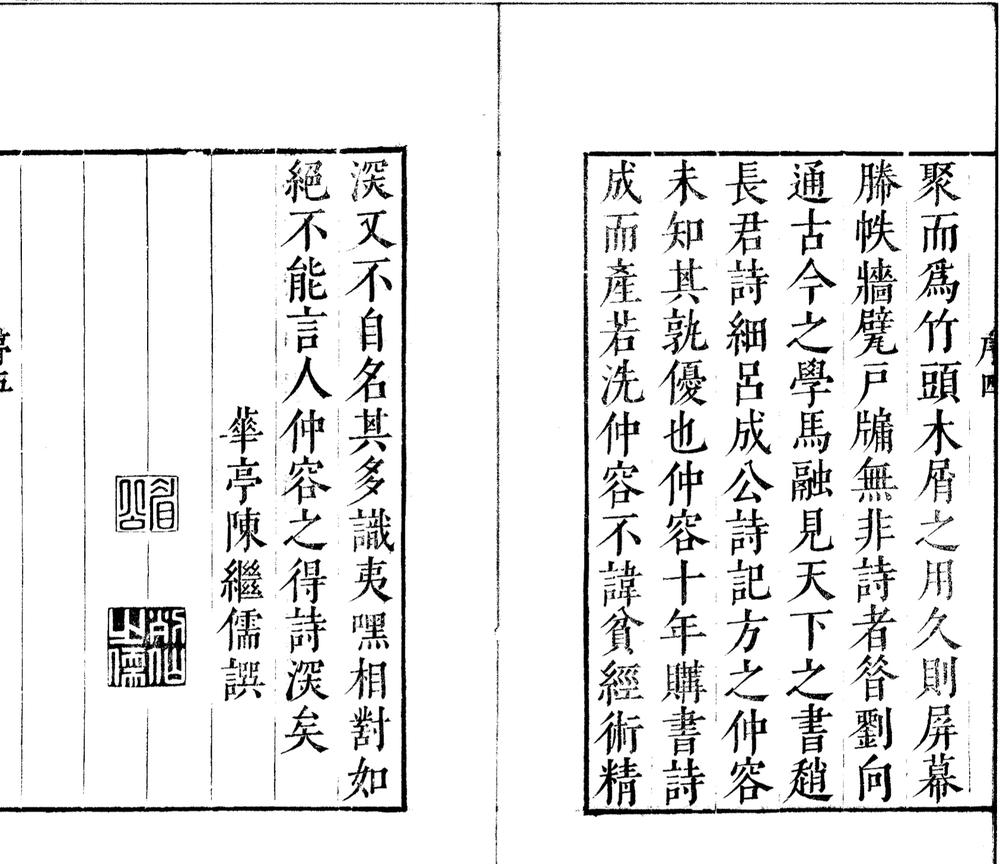 聚而爲竹頭木屑之用久則屏幕
縢帙牆甓戸牖無非詩者昝劉向
通古今之學馬融見天下之書趙
長君詩細呂成公詩記方之仲容
未知其孰優也仲容十年購書詩
成而產若洗仲容不諱貧經術精
序四
深又不自名其多識夷嘿相對如
絕不能言人仲容之得詩深矣
華亭陳繼儒譔
眉公
序五